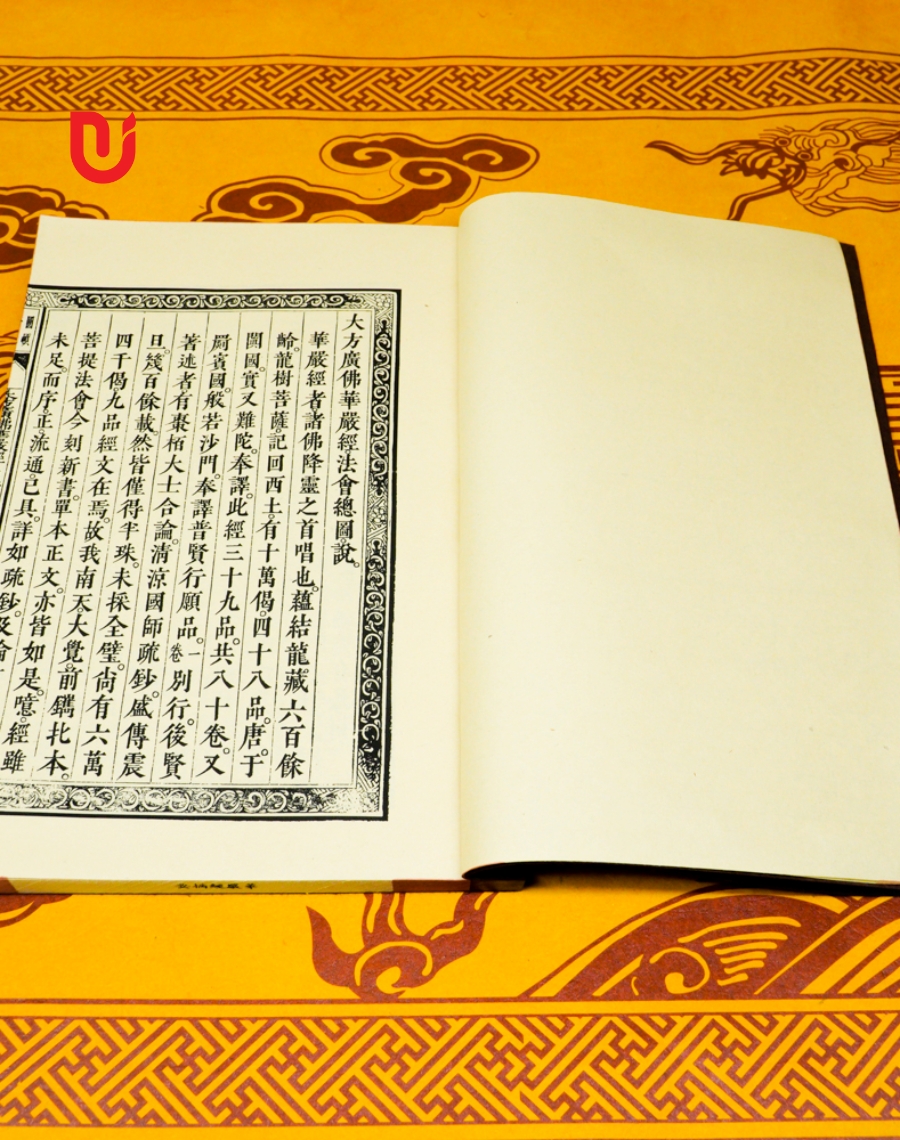 大方廣佛華嚴經法會總圖說。
華嚴經者。諸佛降靈之首唱也。蘊結龍藏六百餘
齡。龍樹菩薩。記回西土。有十萬偈。四十八品。唐。于
闐國。實叉難陀。奉譯。此經三十九品。共八十卷。又
罽賓國。般若沙門。奉譯普賢行願品。一卷別行。後賢
著述者。有棗栢大士合論。清涼國師疏鈔。盛傳震
旦。幾百餘載。然皆僅得半珠。未採全璧。尙有六萬
四千偈。九品經文在焉。故我南天。大覺。前鐫北本。
菩提法會。今刻新書。單本正文。亦皆如是。噫。經雖
未足。而序。正。流通。已具。詳如疏鈔。及論